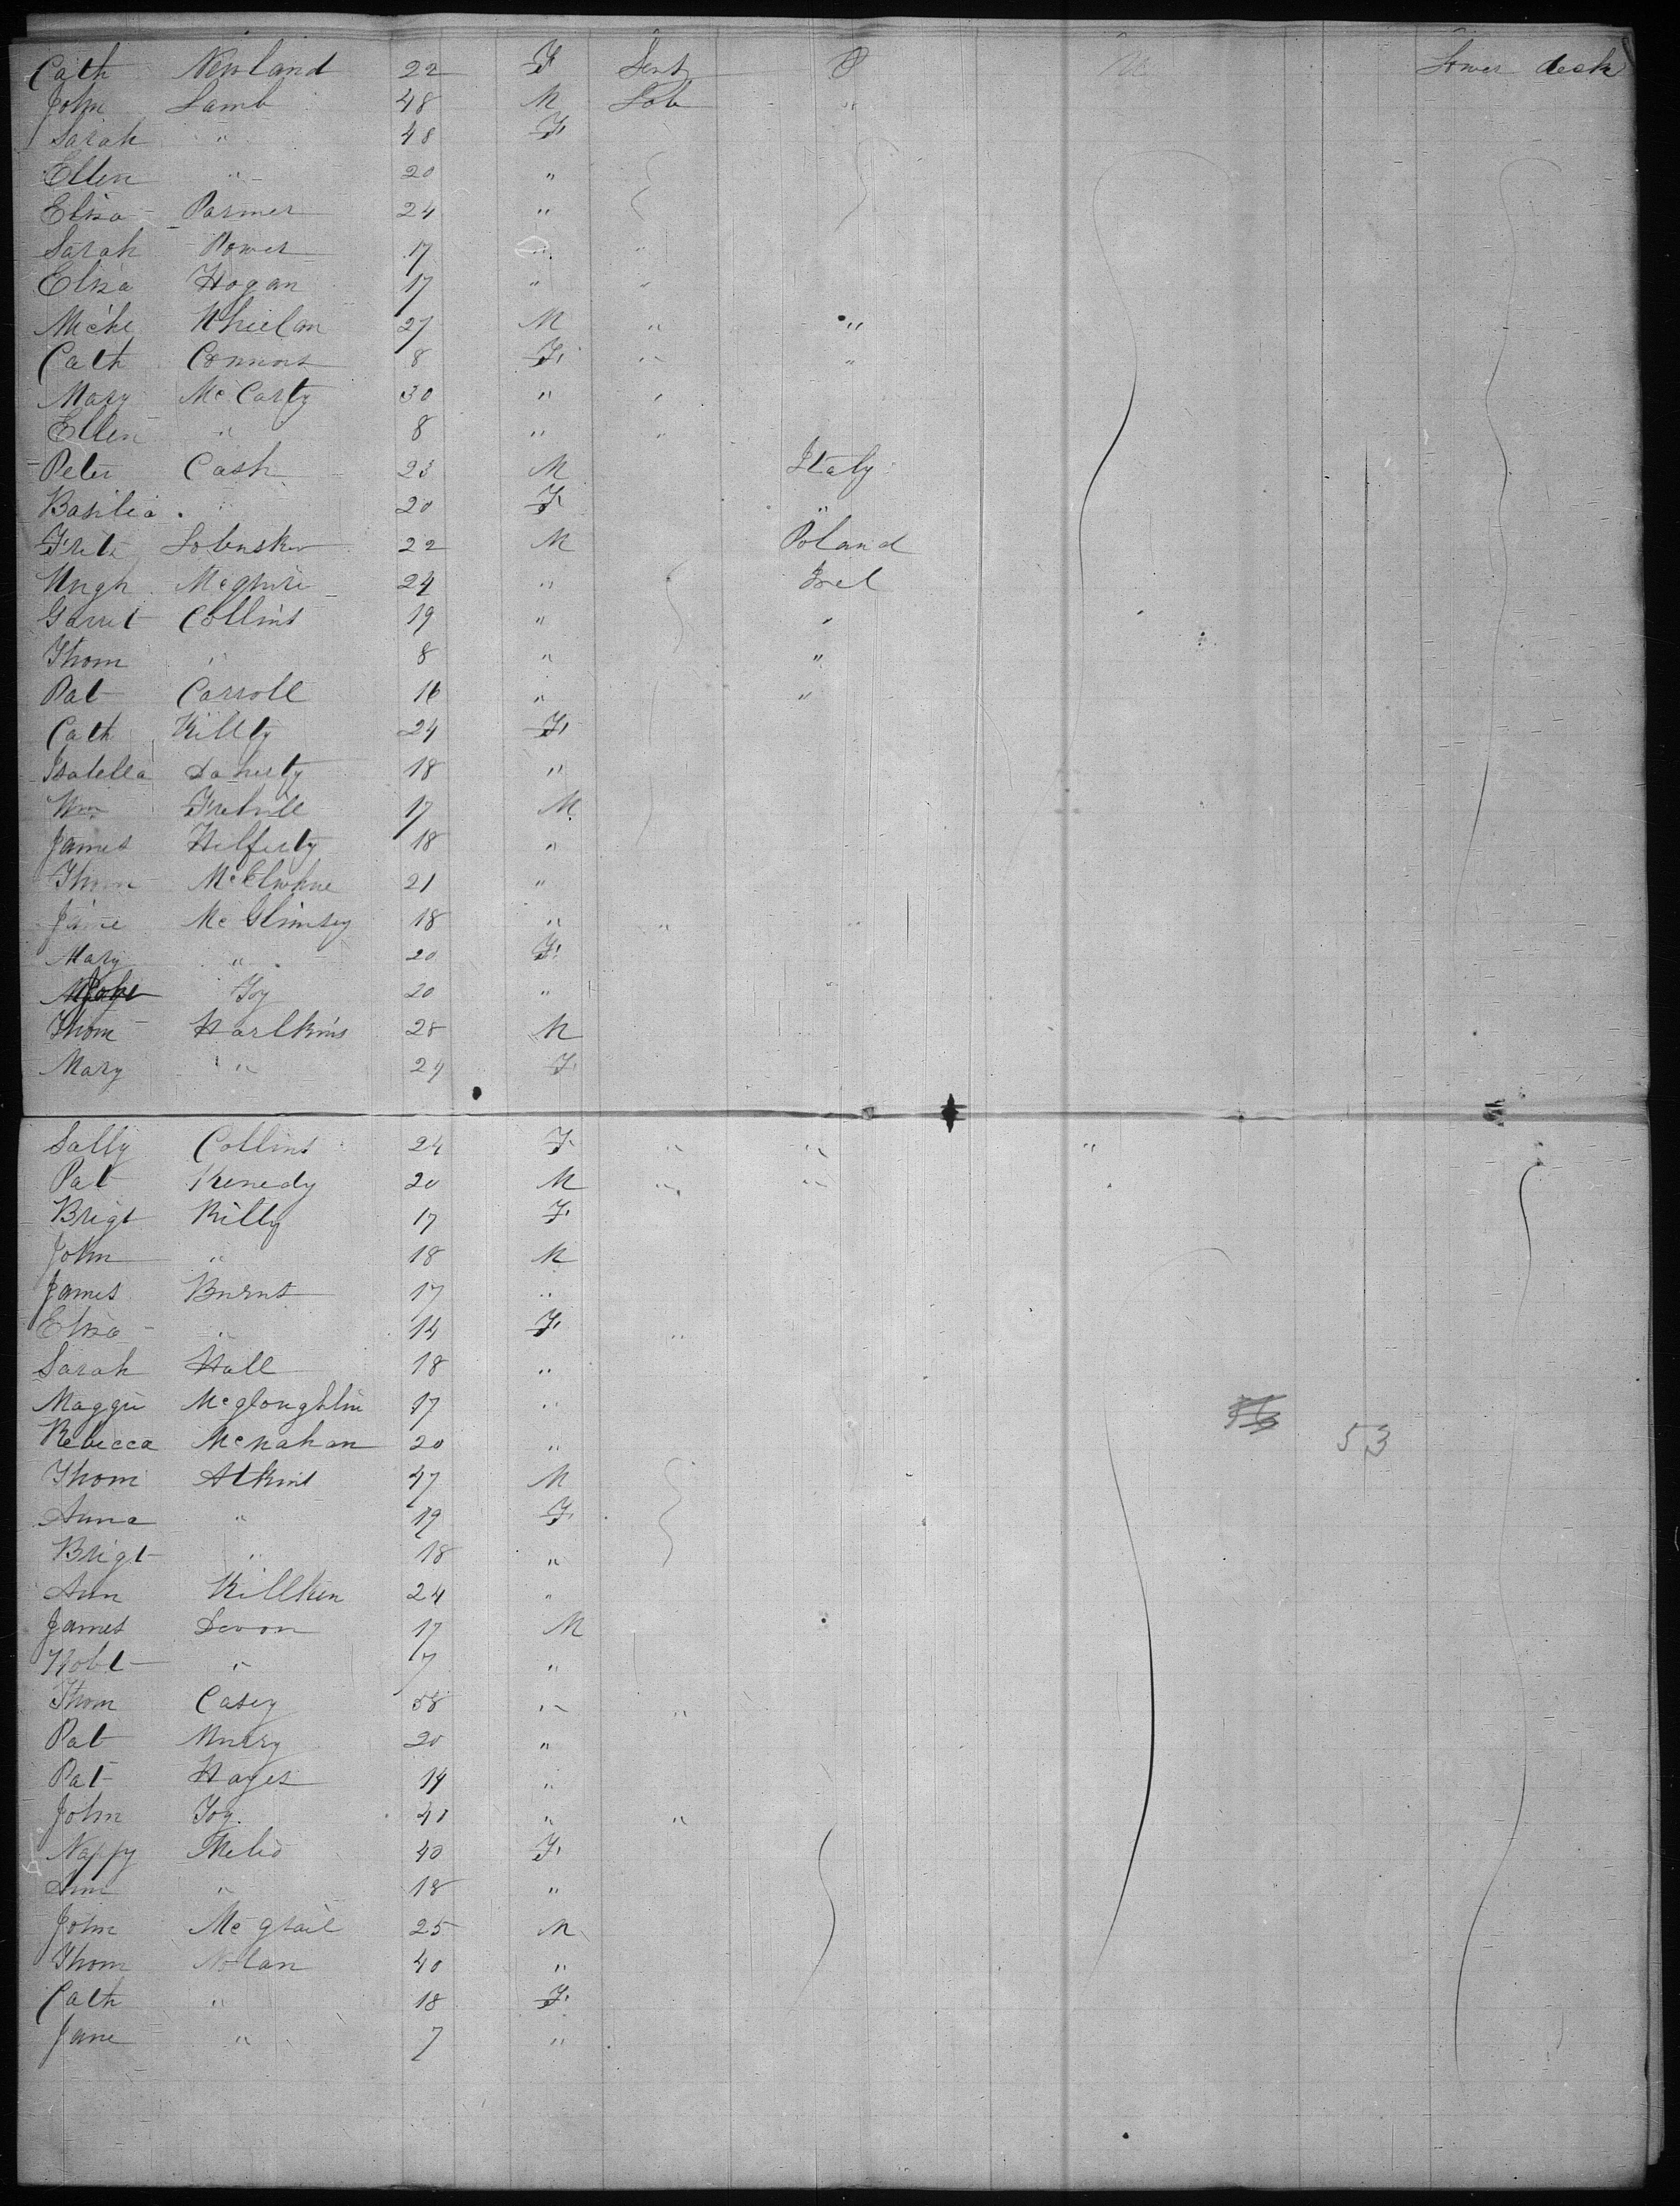 Cath Newland 22 F Servt Lower deck
John Lamb 48 M Lab "
Sarah " 48 F
Ellen " 20 "
Eliza Parmer 24 "
Sarah Power 17 " "
Eliza Hogan 17 " "
Michl Whelan 27 M " "
Cath Connors 8 F " "
Mary McCarty 30 " "
Ellen " 8 " "
Peter Cash 23 M Italy
Basilia " 20 F "
22 M Poland
Hugh Mcguire 24 " Irel
Garret Collins 19 " "
Thom " 8 " "
Pat Carroll 16 " "
Cath Killty 24 F
Isabella Doherty 18 "
Wm 17 M
James Hilferty 18 "
Thom 21 "
McGlimsey 18 " "
Mary " 20 F
Joy 20 "
Thom Harlkins 28 M
Mary " 29 F
Sally Collins 24 F " " "
Pat Kenedy 20 M " "
Brigt Killy 17 F
John " 18 M
James Burns 17 "
Eliza " 14 F "
Sarah Hall 18 "
Maggie Mcgloughlin 17 "
Rebecca McMahan 20 " 53
Thom Atkins 47 M
Anna " 19 F
Brigt " 18 "
Ann Killken 24 "
James Devon 17 M
Robt " 7 "
Thom Casey 58 " "
Pat Murry 20 "
Pat Hayes 14 "
John Joy 40 " "
Nappy 40 F
Ann " 18 "
John Mcgrail 25 M
Thom Nolan 40 "
Cath " 18 F
Jane " 7 "